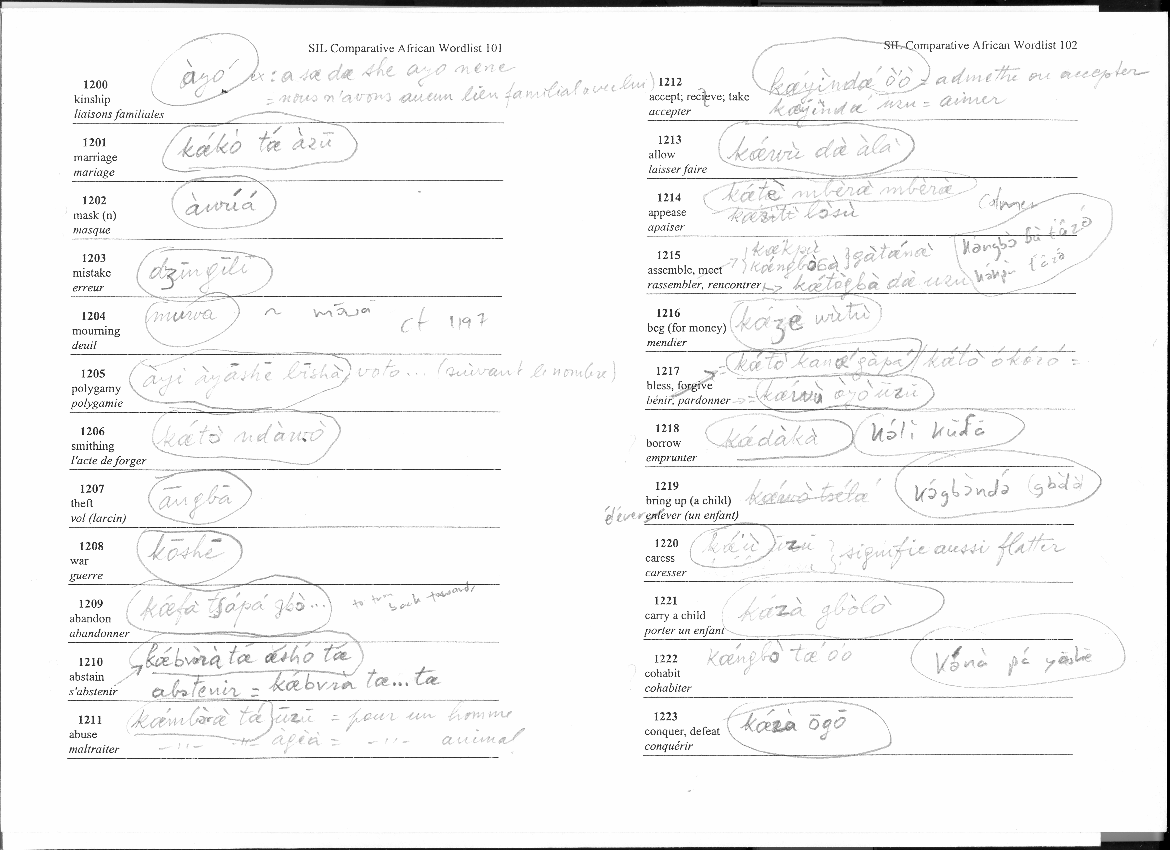 SIL Comparative African Wordlist 101
1200
kinship
liaisons familiales
àyó ex: a sœ dœ she ayo nene
= nous n'avons aucun lien familial avec lui)
1201
marriage
mariage
kœ́kò tœ́ àzū
1202
mask (n)
masque
àwúá
1203
mistake
erreur
dʒīngīlī
1204
mourning
deuil
muwa ~ māwā cf 1197
1205
polygamy
polygamie
àyi àyāshē bīshā, voto... (suivant le nombre)
1206
smithing
l'acte de forger
kátò ndàwò
1207
theft
vol (larcin)
āngbā
1208
war
guerre
kōshē
1209
abandon
abandonner
kœ́fà tʃápá gbò... to turn back towards
1210
abstain
s'abstenir
kœ́bvœ̀rà tœ́ œ́shó tœ
abstenir = kœbvrà tœ...tœ
1211
abuse
maltraiter
kœ́mbœ̀rœ̀ tœ́ ūzū = pour un homme
-"- -"- àgɛ̀à = -"- animal
SIL Comparative African Wordlist 102
1212
accept; recieve; take
accepter
kœ́yìndœ́ òò = admettre ou accepter
kœ́yìndœ́ uzu = aimer
1213
allow
laisser faire
kœ́wù dœ̀ àlà
1214
appease
apaiser
kœ́tè mbèrœ̀ mbèrœ̀
lòsù
1215
assemble, meet
rassembler, rencontrer
kœ́kpù
kœ́ngbòsà } gàtœ́nœ̀
kœ́tògbà dœ uzu
kə́ngbə̀ bù tə̄zə̄
1216
beg (for money)
mendier
kœ́zè wùtù
1217
bless, forgive
bénir, pardonner
kœ́tò kanœ́ gàpá / kœ́tò ókóró =
= kœ́wù òyò ūzū
1218
borrow
emprunter
kœ́dàkà kə́lì kūdə̄
1219
bring up (a child)
enlever (un enfant)
kœ́wò tsélœ́
kə́gbə̀ndə́ (gbə̀lə̀
1220
caress
caresser
kœ́ù ūzū } signifie aussi flatter
1221
carry a child
porter un enfant
kœ́zà gbòlò
1222
cohabit
cohabiter
kœ́ngbò tœ òò kə́nə̀ pá yāshē
1223
conquer, defeat
conquérir
kœ́zà ōgō